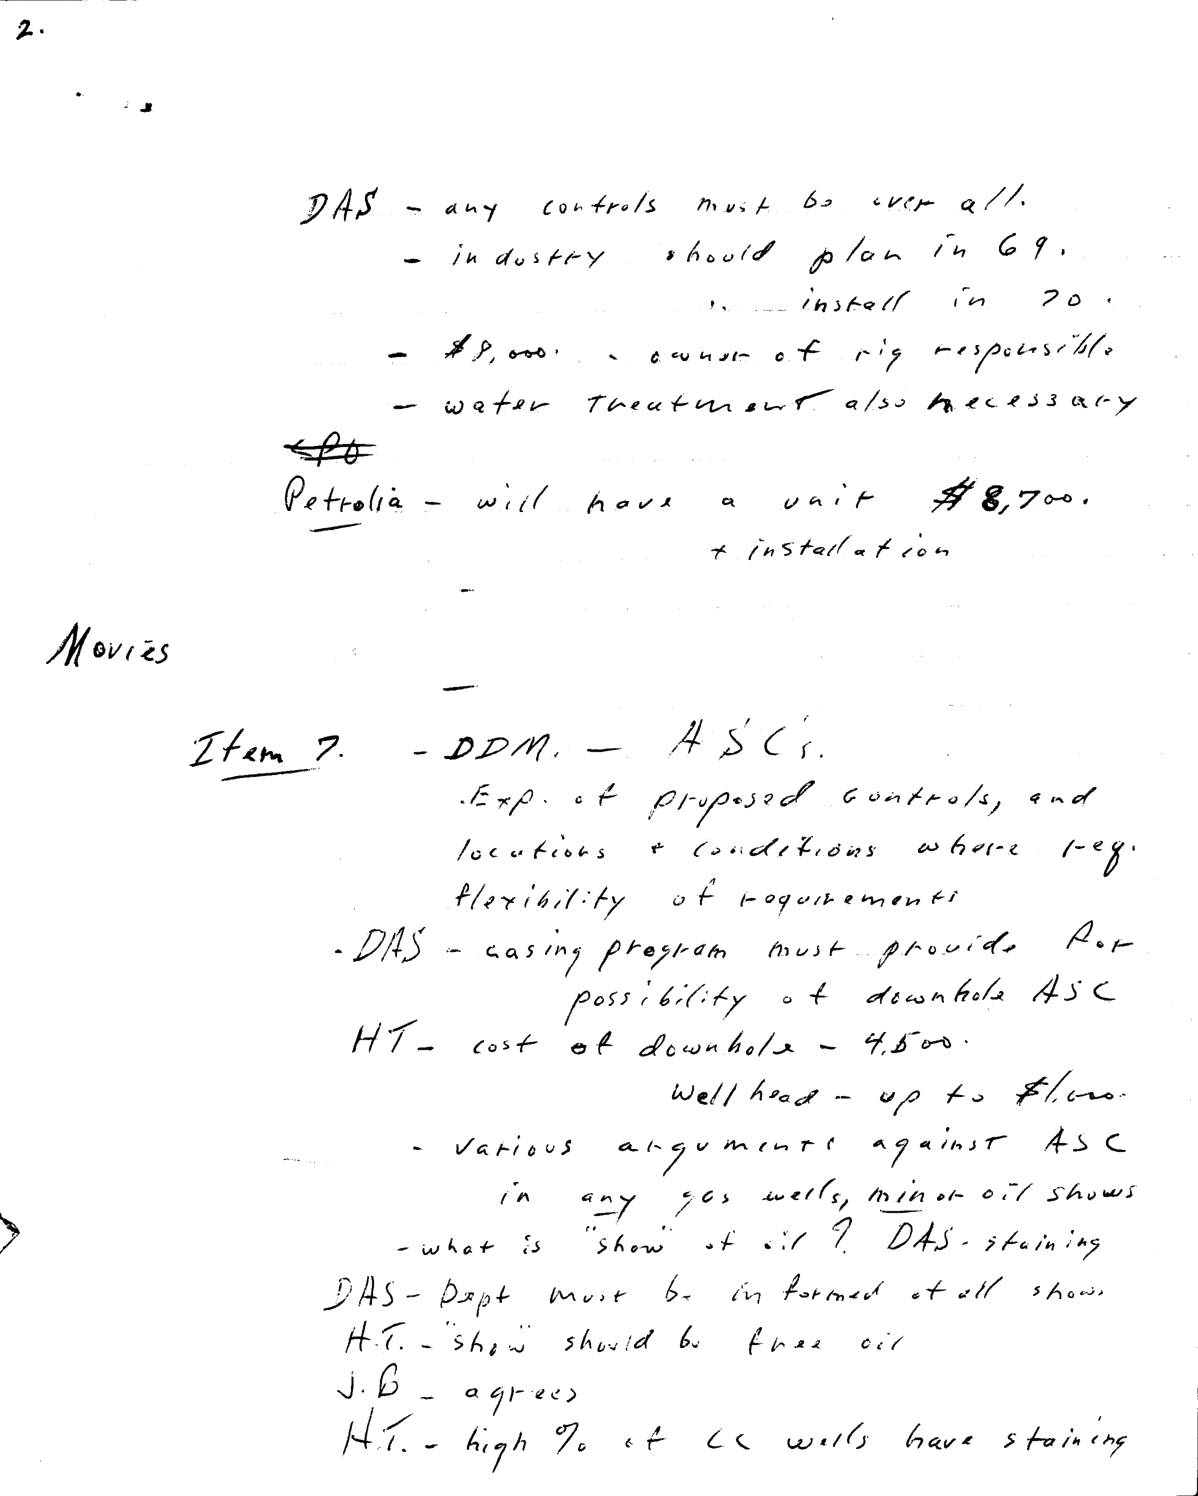 2.
DAS - any controls must be over all.
- industry should plan in 69.
" install in 70.
- $9,000. - owner of rig responsible
- water treatment also necessary
Petrolia - will have a unit $8,700.
+ installation
-
Movies
-
Item 7. - DDM. - ASC's.
. Exp. of proposed controls, and
locations + conditions where req.
flexibility of requirements
. DAS - casing program must provide for
possibility of downhole ASC
HT - cost of downhole - 4,500.
Well head - up to $1,000.
- various arguments against ASC
in any gas wells, minor oil shows
- what is "show" of oil? DAS - staining
DAS - Dept must be informed of all shows
H.T. - "show" should be free oil
J.B - agrees
H.T. - high % of CC wells have staining